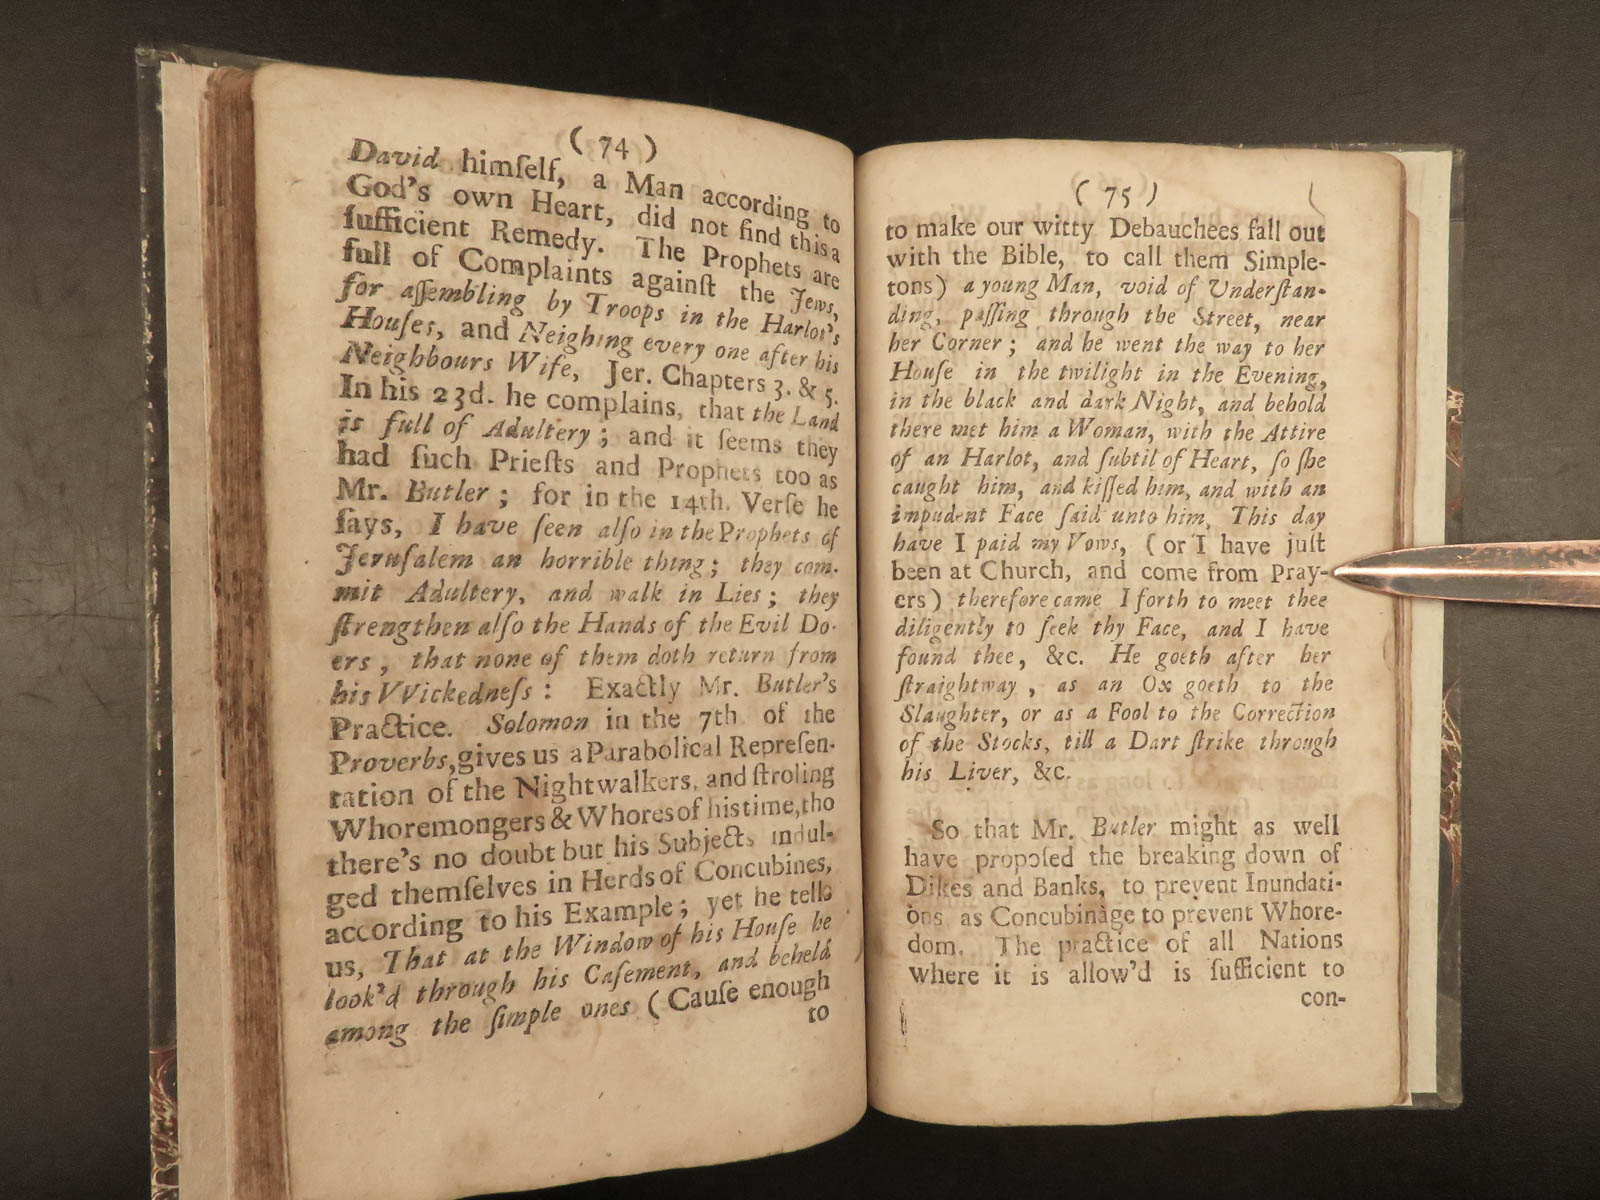 ( 74 )
David himſelf, a Man according to
God's own Heart, did not find this a
ſufficient Remedy. The Prophets are
full of Complaints againſt the Jews,
for aſſembling by Troops in the Harlot's
Houſes, and Neighing every one after his
Neighbours Wife, Jer. Chapters 3. & 5.
In his 23d. he complains, that the Land
is full of Adultery; and it ſeems they
had ſuch Prieſts and Prophets too as
Mr. Butler; for in the 14th. Verſe he
ſays, I have ſeen alſo in the Prophets of
Jeruſalem an horrible thing; they com-
mit Adultery, and walk in Lies; they
ſtrengthen alſo the Hands of the Evil Do-
ers, that none of them doth return from
his VVickedneſs: Exactly Mr. Butler's
Practice. Solomon in the 7th of the
Proverbs, gives us a Parabolical Repreſen-
tation of the Nightwalkers, and ſtroling
Whoremongers & Whores of his time, tho
there's no doubt but his Subjects indul-
ged themſelves in Herds of Concubines,
according to his Example; yet he tells
us, That at the Window of his Houſe he
look'd through his Caſement, and beheld
among the ſimple ones (Cauſe enough
to
( 75 )
to make our witty Debauchees fall out
with the Bible, to call them Simple-
tons) a young Man, void of Underſtan-
ding, paſſing through the Street, near
her Corner; and he went the way to her
Houſe in the twilight in the Evening,
in the black and dark Night, and behold
there met him a Woman, with the Attire
of an Harlot, and ſubtil of Heart, ſo ſhe
caught him, and kiſſed him, and with an
impudent Face ſaid unto him, This day
have I paid my Vows, (or I have juſt
been at Church, and come from Pray-
ers) therefore came I forth to meet thee
diligently to ſeek thy Face, and I have
found thee, &c. He goeth after her
ſtraightway, as an Ox goeth to the
Slaughter, or as a Fool to the Correction
of the Stocks, till a Dart ſtrike through
his Liver, &c.
So that Mr. Butler might as well
have propoſed the breaking down of
Dikes and Banks, to prevent Inundati-
ons as Concubinage to prevent Whore-
dom. The practice of all Nations
where it is allow'd is ſufficient to
con-